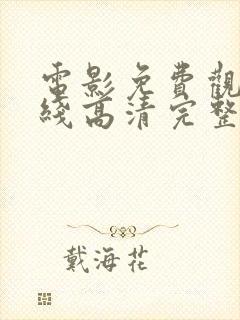 電影免費觀
綫高清完整
戴海花